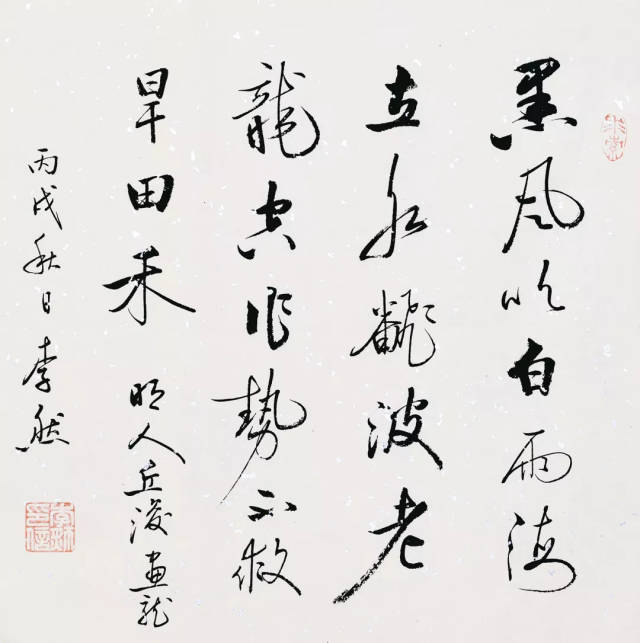 黑風吹白雨海
立水飜波老
龍空作勢不救
旱田禾 明人丘浚畫龍
丙戌秋日李然